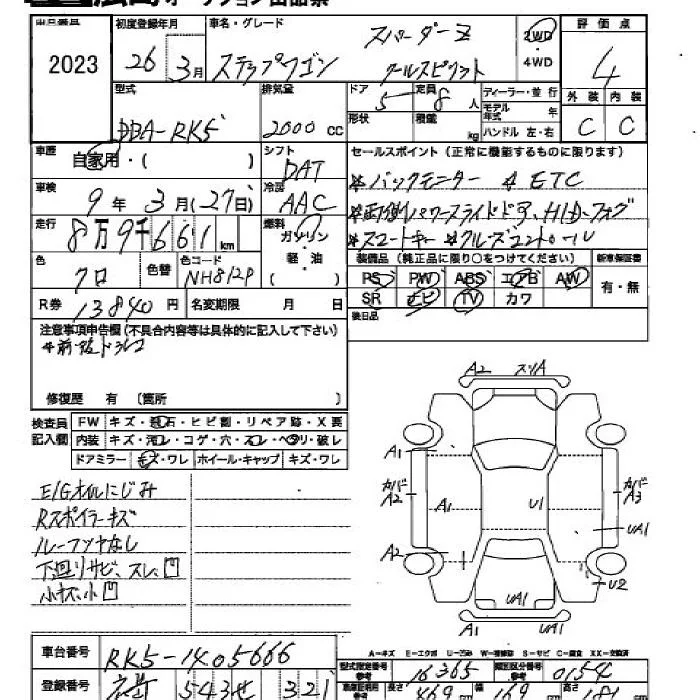 広島オークション出品票
出品番号 2023
初度登録年月 26年 3月
車名・グレード ステップワゴン スパーダーZ クールスピリット
2WD ・ 4WD
評価点 4
外装 C 内装 C
型式 DBA-RK5
排気量 2000 CC
ドア 5 定員 8人
形状 積載 kg
ディーラー・並行
モデル年式 年
ハンドル 左・右
車歴 自家用・( )
シフト DAT
車検 9年 3月(27日)
冷房 AAC
走行 8万9千661km
燃料 ガソリン・軽油( )
色 クロ 色替 色コード NH812P
R券 13840円 名変期限 月 日
セールスポイント(正常に機能するものに限ります)
*バックモニター *ETC
*両側パワースライドドア、HID・フォグ
*スマートキー *クルーズコントロール
装備品(純正品に限り○をつけてください) 新車保証書
PS PW ABS エアB AW 有・無
SR ナビ TV カワ
後日品
注意事項申告欄(不具合内容等は具体的に記入して下さい)
*前后ドラレコ
修復歴 有 〔箇所 〕
検査員記入欄 FW キズ・飛石・ヒビ割・リペア跡・X要
内装 キズ・汚レ・コゲ・穴・スレ・ヘタリ・破レ
ドアミラー キズ・ワレ ホイール・キャップ キズ・ワレ
E/Gオイルにじみ
Rスポイラーキズ
ルーフツヤなし
下回りサビ、スレ、凹
小キズ、小凹
A2 スリA
A1
カバA2
A1
U1
カバA3
UA1
A2
U2
UA1
A-キズ E-エクボ U-凹み W-補修跡 S-サビ C-腐食 XX-交換済
車台番号 RK5-1405666
型式指定番号 参考 16365 類別区分番号 参考 0154
登録番号 543 321
長さ 469 cm 幅 169 cm 高さ 181 cm